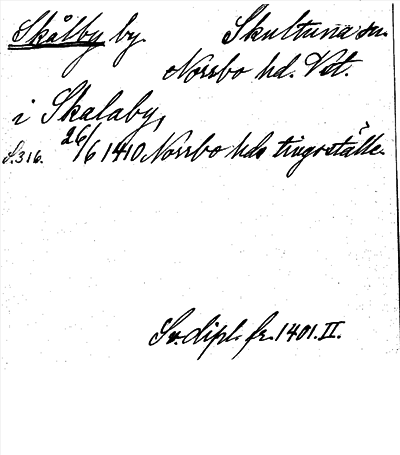 Skålby by. Skultuna sn.
Norrbo hd. Vst.
i Skalaby,
S.316. 26/6 1410 Norrbo hds tingsställe.
Sv. dipl. fr. 1401. II.